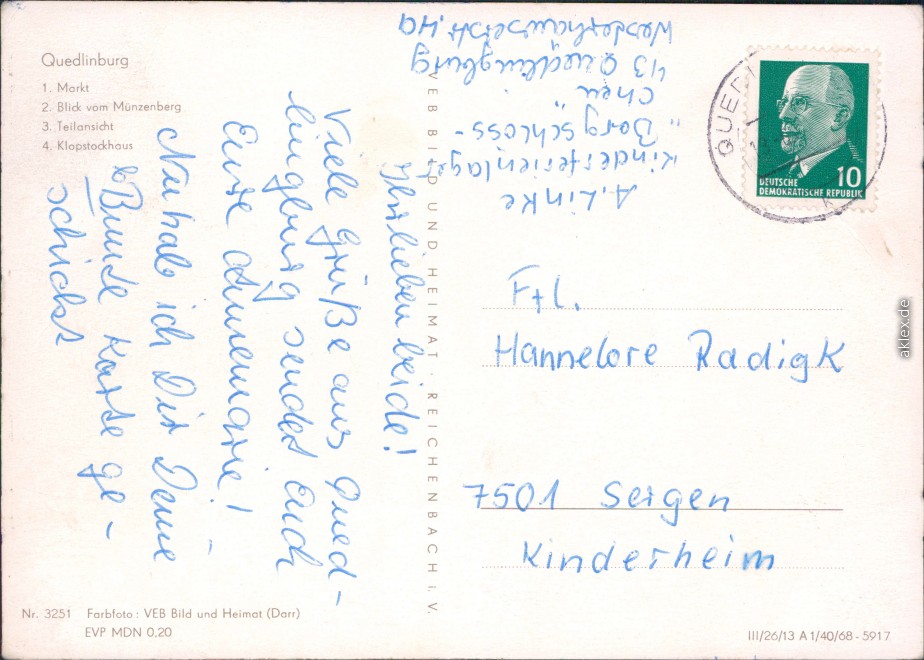 Quedlinburg
1. Markt
2. Blick vom Münzenberg
3. Teilansicht
4. Klopstockhaus
Ihr lieben beide!
Viele Grüße aus Qued-
lingburg sendet Euch
Eure Annemarie!
Nun hab ich Dir Deine
Bunte Karte ge-
schickt
A. Linke
Kinderferienlager
"Borgschloss-
chen"
43 Quedlingburg
VEB BILD UND HEIMAT · REICHENBACH i. V.
DEUTSCHE
DEMOKRATISCHE REPUBLIK
10
Frl.
Hannelore Radigk
7501 Sergen
Kinderheim
Nr. 3251 Farbfoto: VEB Bild und Heimat (Darr)
EVP MDN 0,20
III/26/13 A 1/40/68 - 5917
aklex.de